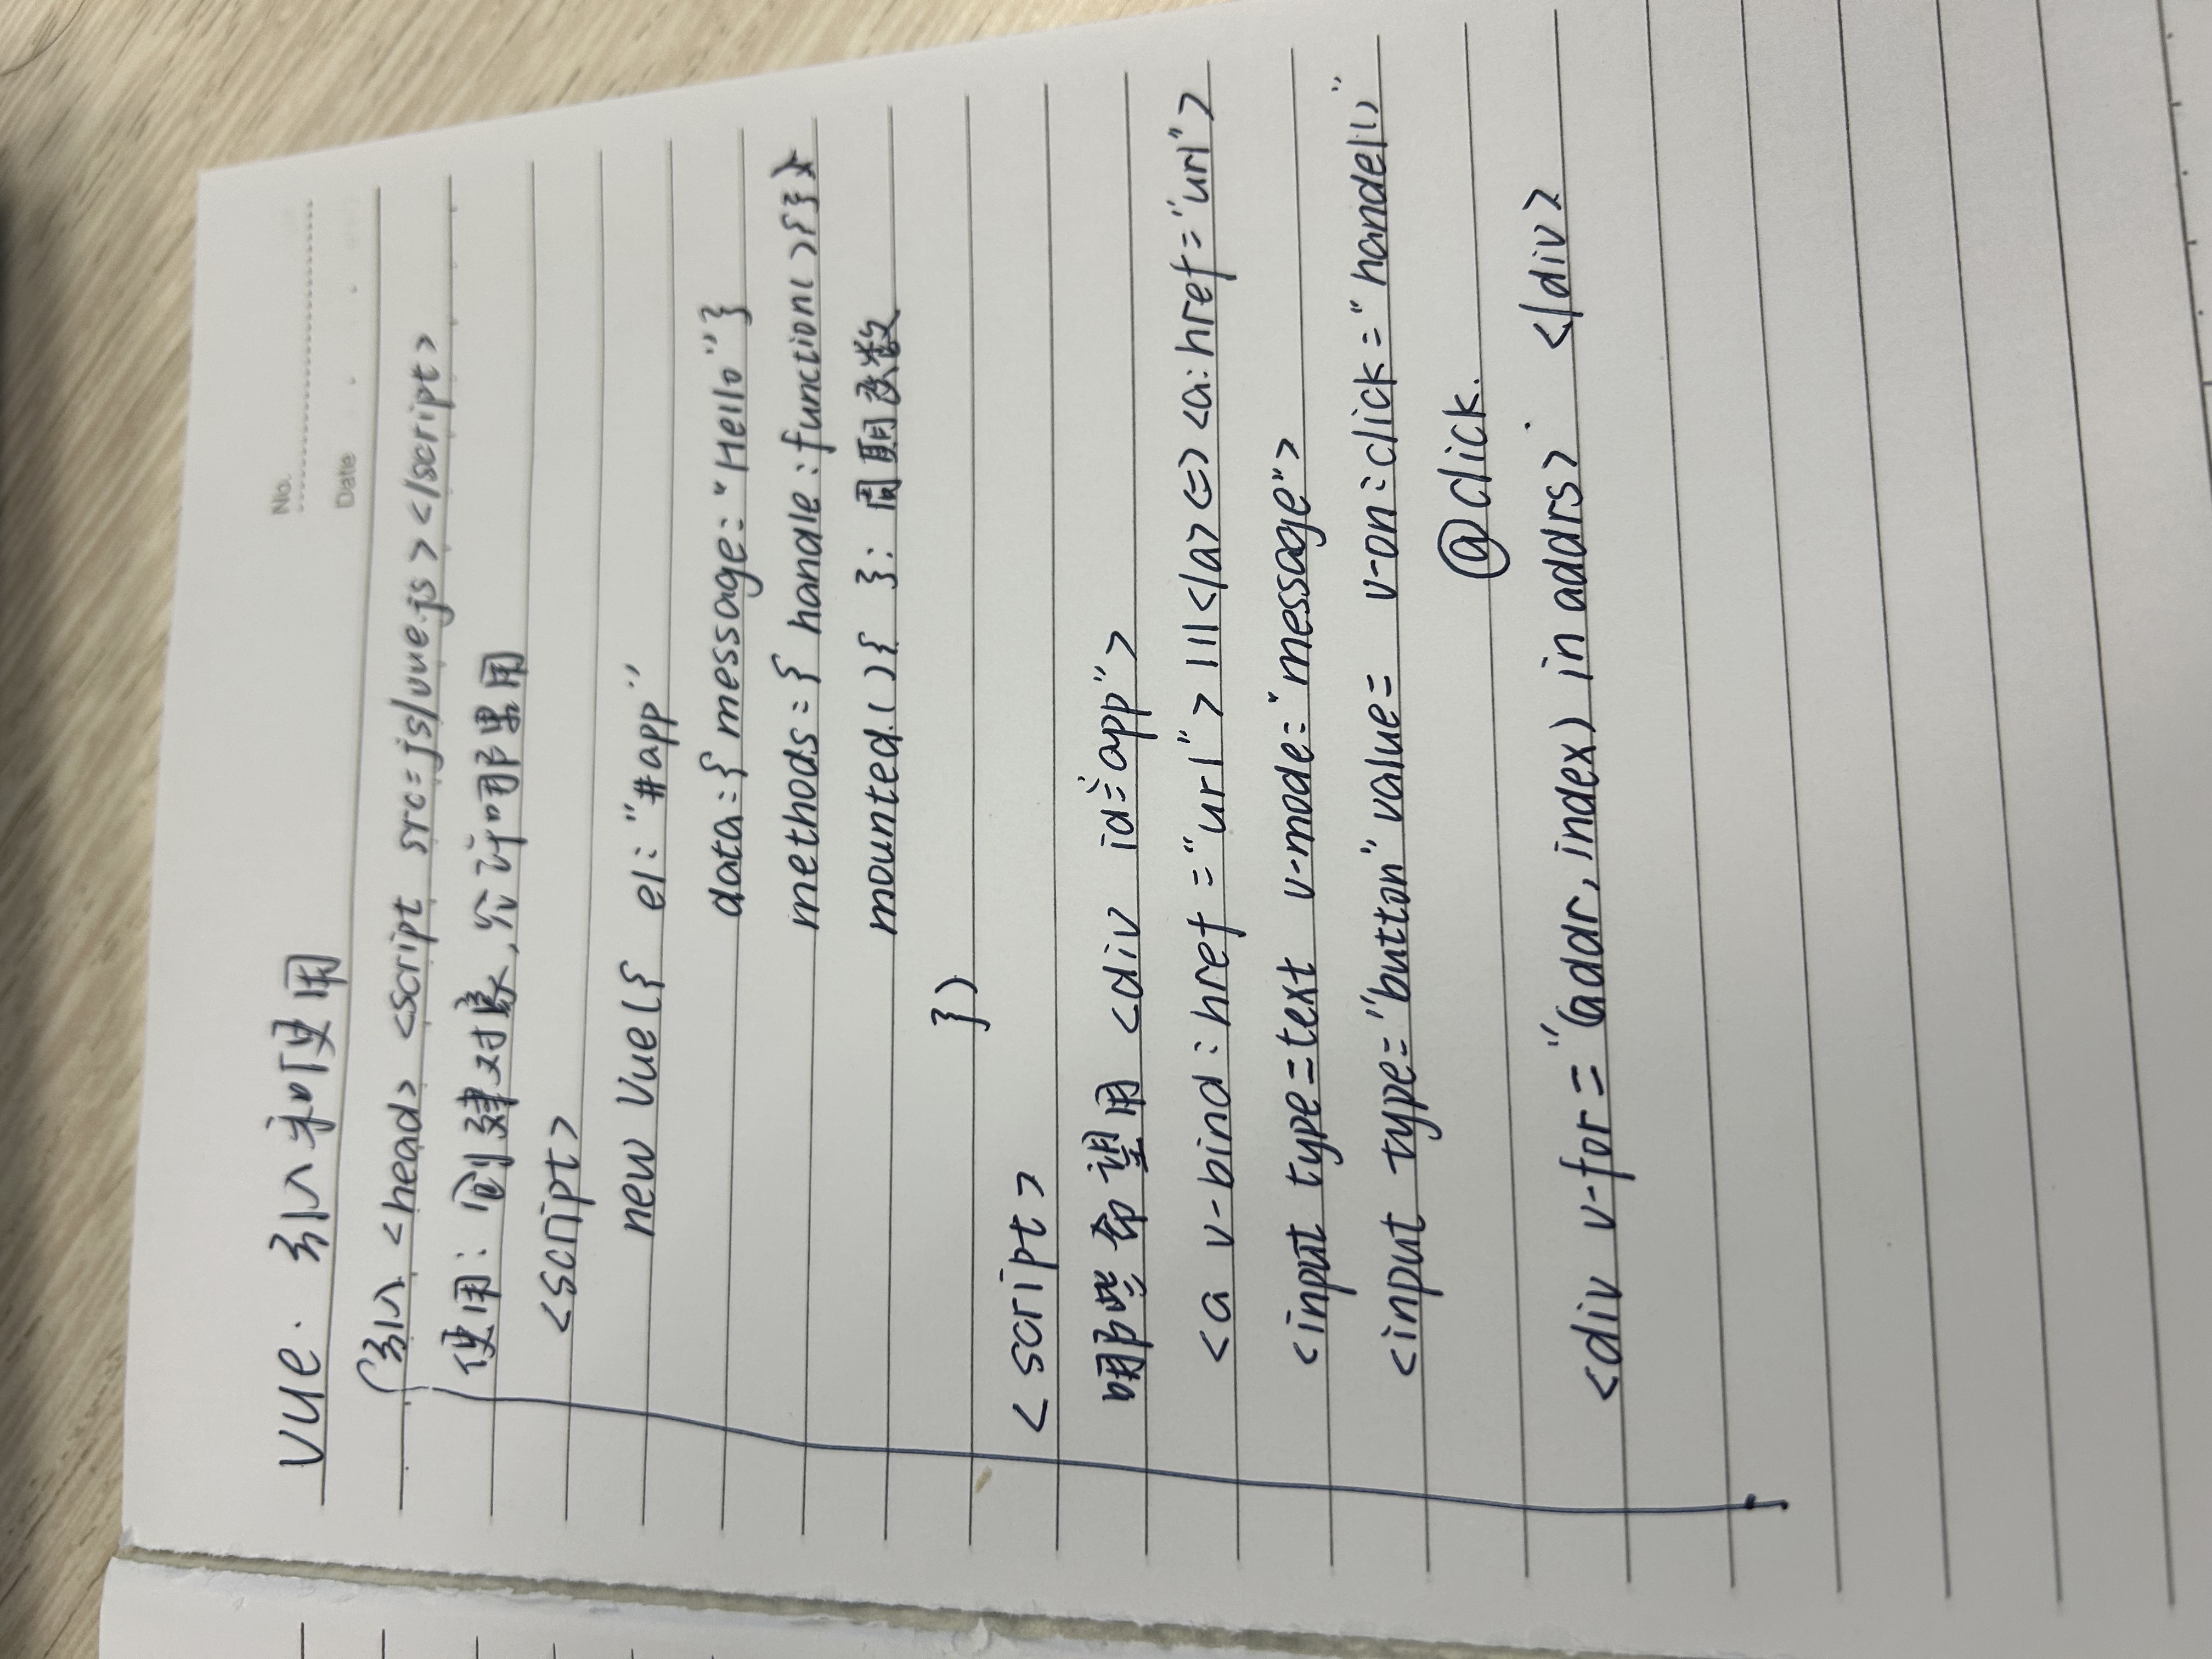 vue. 引入和使用
No.
Date
引入 <head> <script src=js/vue.js></script>
使用: 创建对象,允许哪里用
<script>
new Vue({ el: "#app"
data:{ message: "Hello"}
methods={ handle:function(){}}
mounted.(){ }: 周期函数
})
<script>
哪些希望用 <div id="app">
<a v-bind:href="url">111</a><=><a:href="url">
<input type=text v-mode="message">
<input type="button" value= v-on:click="handel()"
@click.
<div v-for="(addr,index) in addrs>" </div>